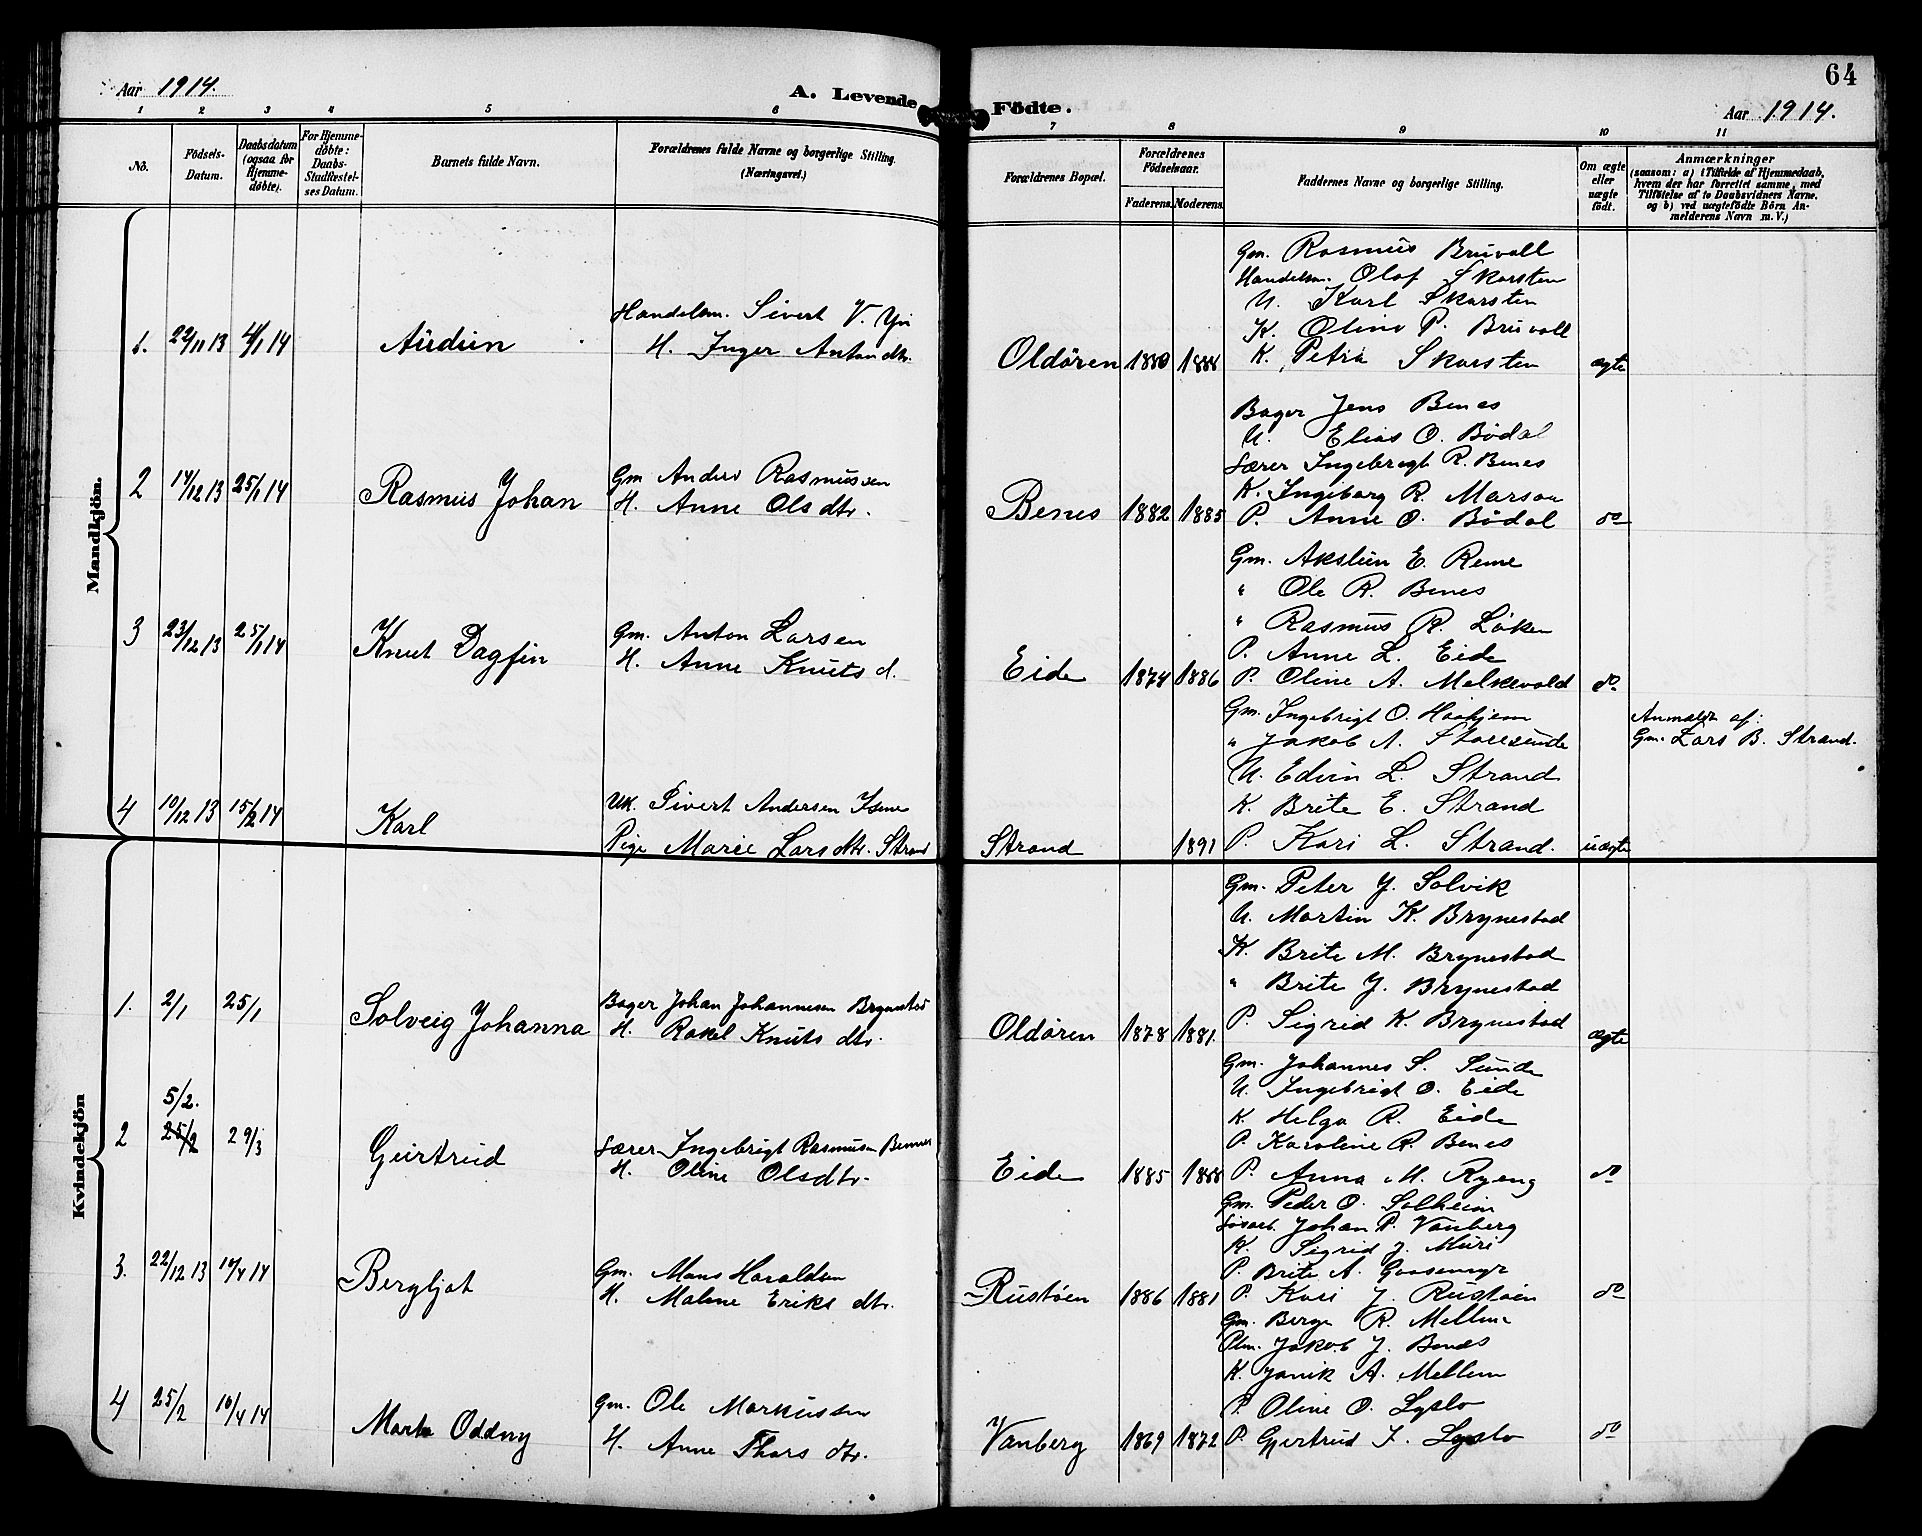 64
Aar 1914.
A. Levende Födte.
Aar 1914.
1 2 3 4 5 6 7 8 9 10 11
No.
Födsels-Datum.
Daabsdatum (ogsaa for Hjemme-døbte).
For Hjemme-døbte: Daabs-Stadfæstel-ses Datum.
Barnets fulde Navn.
Forældrenes fulde Navne og borgerlige Stilling. (Næringsvei.)
Forældrenes Bopæl.
Forældrenes Födselsaar.
Faderens. Moderens.
Faddernes Navne og borgerlige Stilling.
Om ægte eller uægte födt.
Anmærkninger
(saasom: a) i Tilfælde af Hjemmedaab, hvem der har forrettet samme, med Tilföielse af to Daabsvidners Navne, og b) ved uægtefödte Börn An-melderens Navn m. V.)
Mandkjön.
1. 22/11 13 4/1 14
Handelsm. Sivert V.
H. Inger Anton dtr.
Oldøren 1880 1888
Gm. Rasmus Bruvoll
Handelsm. Olaf Skarsten
U. Karl Skarsten
K. Oline P. Bruvoll
K. Petra Skarsten
ægte
2 14/12 13 25/1 14
Rasmus Johan
Gm Anders Rasmussen
H. Anne Olsdtr.
Benes 1882 1885
Bager Jens Benes
U. Elias O. Bødal
Lærer Ingebrigt R. Benes
K. Ingeborg R.
P. Anne O. Bødal
do
3 23/12 13 25/1 14
Knut Dagfin
Gm. Anton Larsen
H. Anne Knuts d.
Eide 1874 1886
Gm. E. Reme
" Ole R. Benes
" Rasmus R. Løken
P. Anne L. Eide
P. Oline A. Melkevold
do
4 10/12 13 15/2 14
Karl
Uk. Sivert Andersen
Pige Marie Lars dtr. Strand
Strand 1891
Gm. Ingebrigt O.
" Jakob A. Storesunde
U. Edvin L. Strand
K. Brite E. Strand
P. Kari L. Strand.
uægte
Anmeldt af:
Gm. Lars B. Strand.
Kvindekjön
1. 2/1 25/1
Solveig Johanna
Bager Johan Johannesen Brynestad
H. Rakel Knuts dtr.
Oldøren 1878 1881.
Gm. Peter J. Solvik
U. Martin K. Brynestad
K. Brite M. Brynestad
" Brite J. Brynestad
P. Sigrid K. Brynestad
ægte
5/2.
2 25/2 29/3
Gjertrud
Lærer Ingebrigt Rasmusen Bennes
H. Oline Olsdtr.
Eide 1885 1888
Gm. Johannes S. Sunde
U. Ingebrigt O. Eide
K. Helga R. Eide
P. Karoline R. Benes
P. Anna M. Ryeng
do
3. 22/12 13 10/4 14
Bergljot
Gm. Mons Haraldsen
H. Malene Eriks dtr.
Rustøen 1886 1881
Gm. Peder O. Solheim
Johan P. Vanberg
K. Sigrid J. Muri
P. Brite A.
P. Kari J. Rustøen
do
4 25/2 10/4 14
Marta Oddny
Gm. Ole Markussen
H. Anne Thors dtr.
Vanberg 1869 1872
Gm. Berge R. Mellem
Jakob J. Benes
K. Janik A. Mellem
P. Oline O. Lyslo
P. Gjertrud I. Lyslo
do